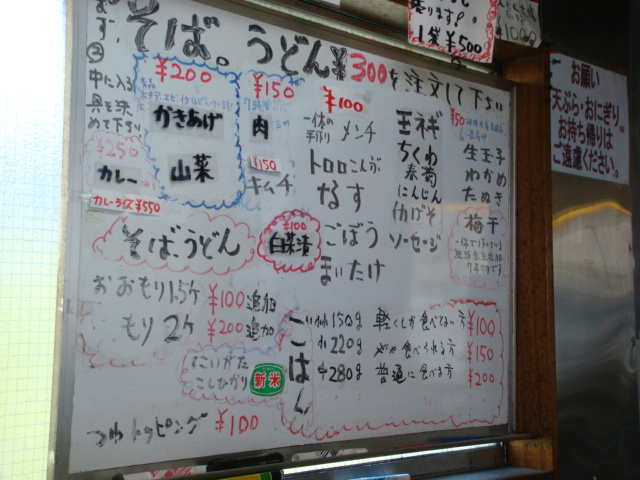 そば。うどん¥300を注文して下さい
ます。
②
中に入る
具を決
めて下さい
¥200
かきあげ
山菜
¥250
カレー
カレーライス¥550
¥150
肉
¥150
キムチ
¥100
一休の
手作り メンチ
トロロこんぶ
なす
ごぼう
まいたけ
玉ネギ
ちくわ
春菊
にんじん
イカげそ
ソーセージ
¥50
生玉子
わかめ
たぬき
梅干
¥100
白菜漬
そば、うどん
おおもり1.5ケ ¥100追加
もり 2ケ ¥200追加
にいがた
こしひかり
新米
ごはん
150g 軽くしか食べてない方 ¥100
220g 食べられる方 ¥150
280g 普通に食べる方 ¥200
トッピング ¥100
1袋¥500
お願い
天ぷら・おにぎり
お持ち帰りは
ご遠慮ください。